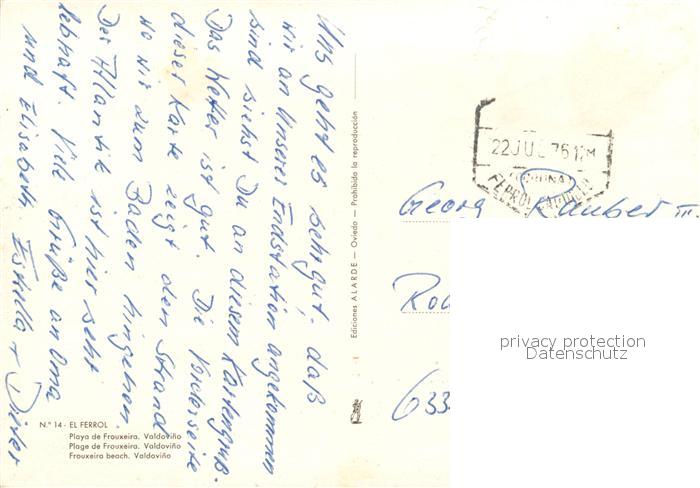 Uns geht es sehr gut, daß
wir an unserer Endstation angekommen
sind siehst Du an diesem Kartengruß.
Das Wetter ist gut. Die Vorderseite
dieser Karte zeigt den Strand
wo wir zum Baden hingehen.
Der Atlantik ist hier sehr
lebhaft. Viele Grüße an Oma
und Elisabeth. Estrella + Dieter
N.º 14 - EL FERROL
Playa de Frouxeira. Valdoviño
Plage de Frouxeira. Valdoviño
Frouxeira beach. Valdoviño
Ediciones ALARDE — Oviedo — Prohibida la reproducción
22 JUL 76
FERROL
Georg Rauber III.
633
privacy protection
Datenschutz